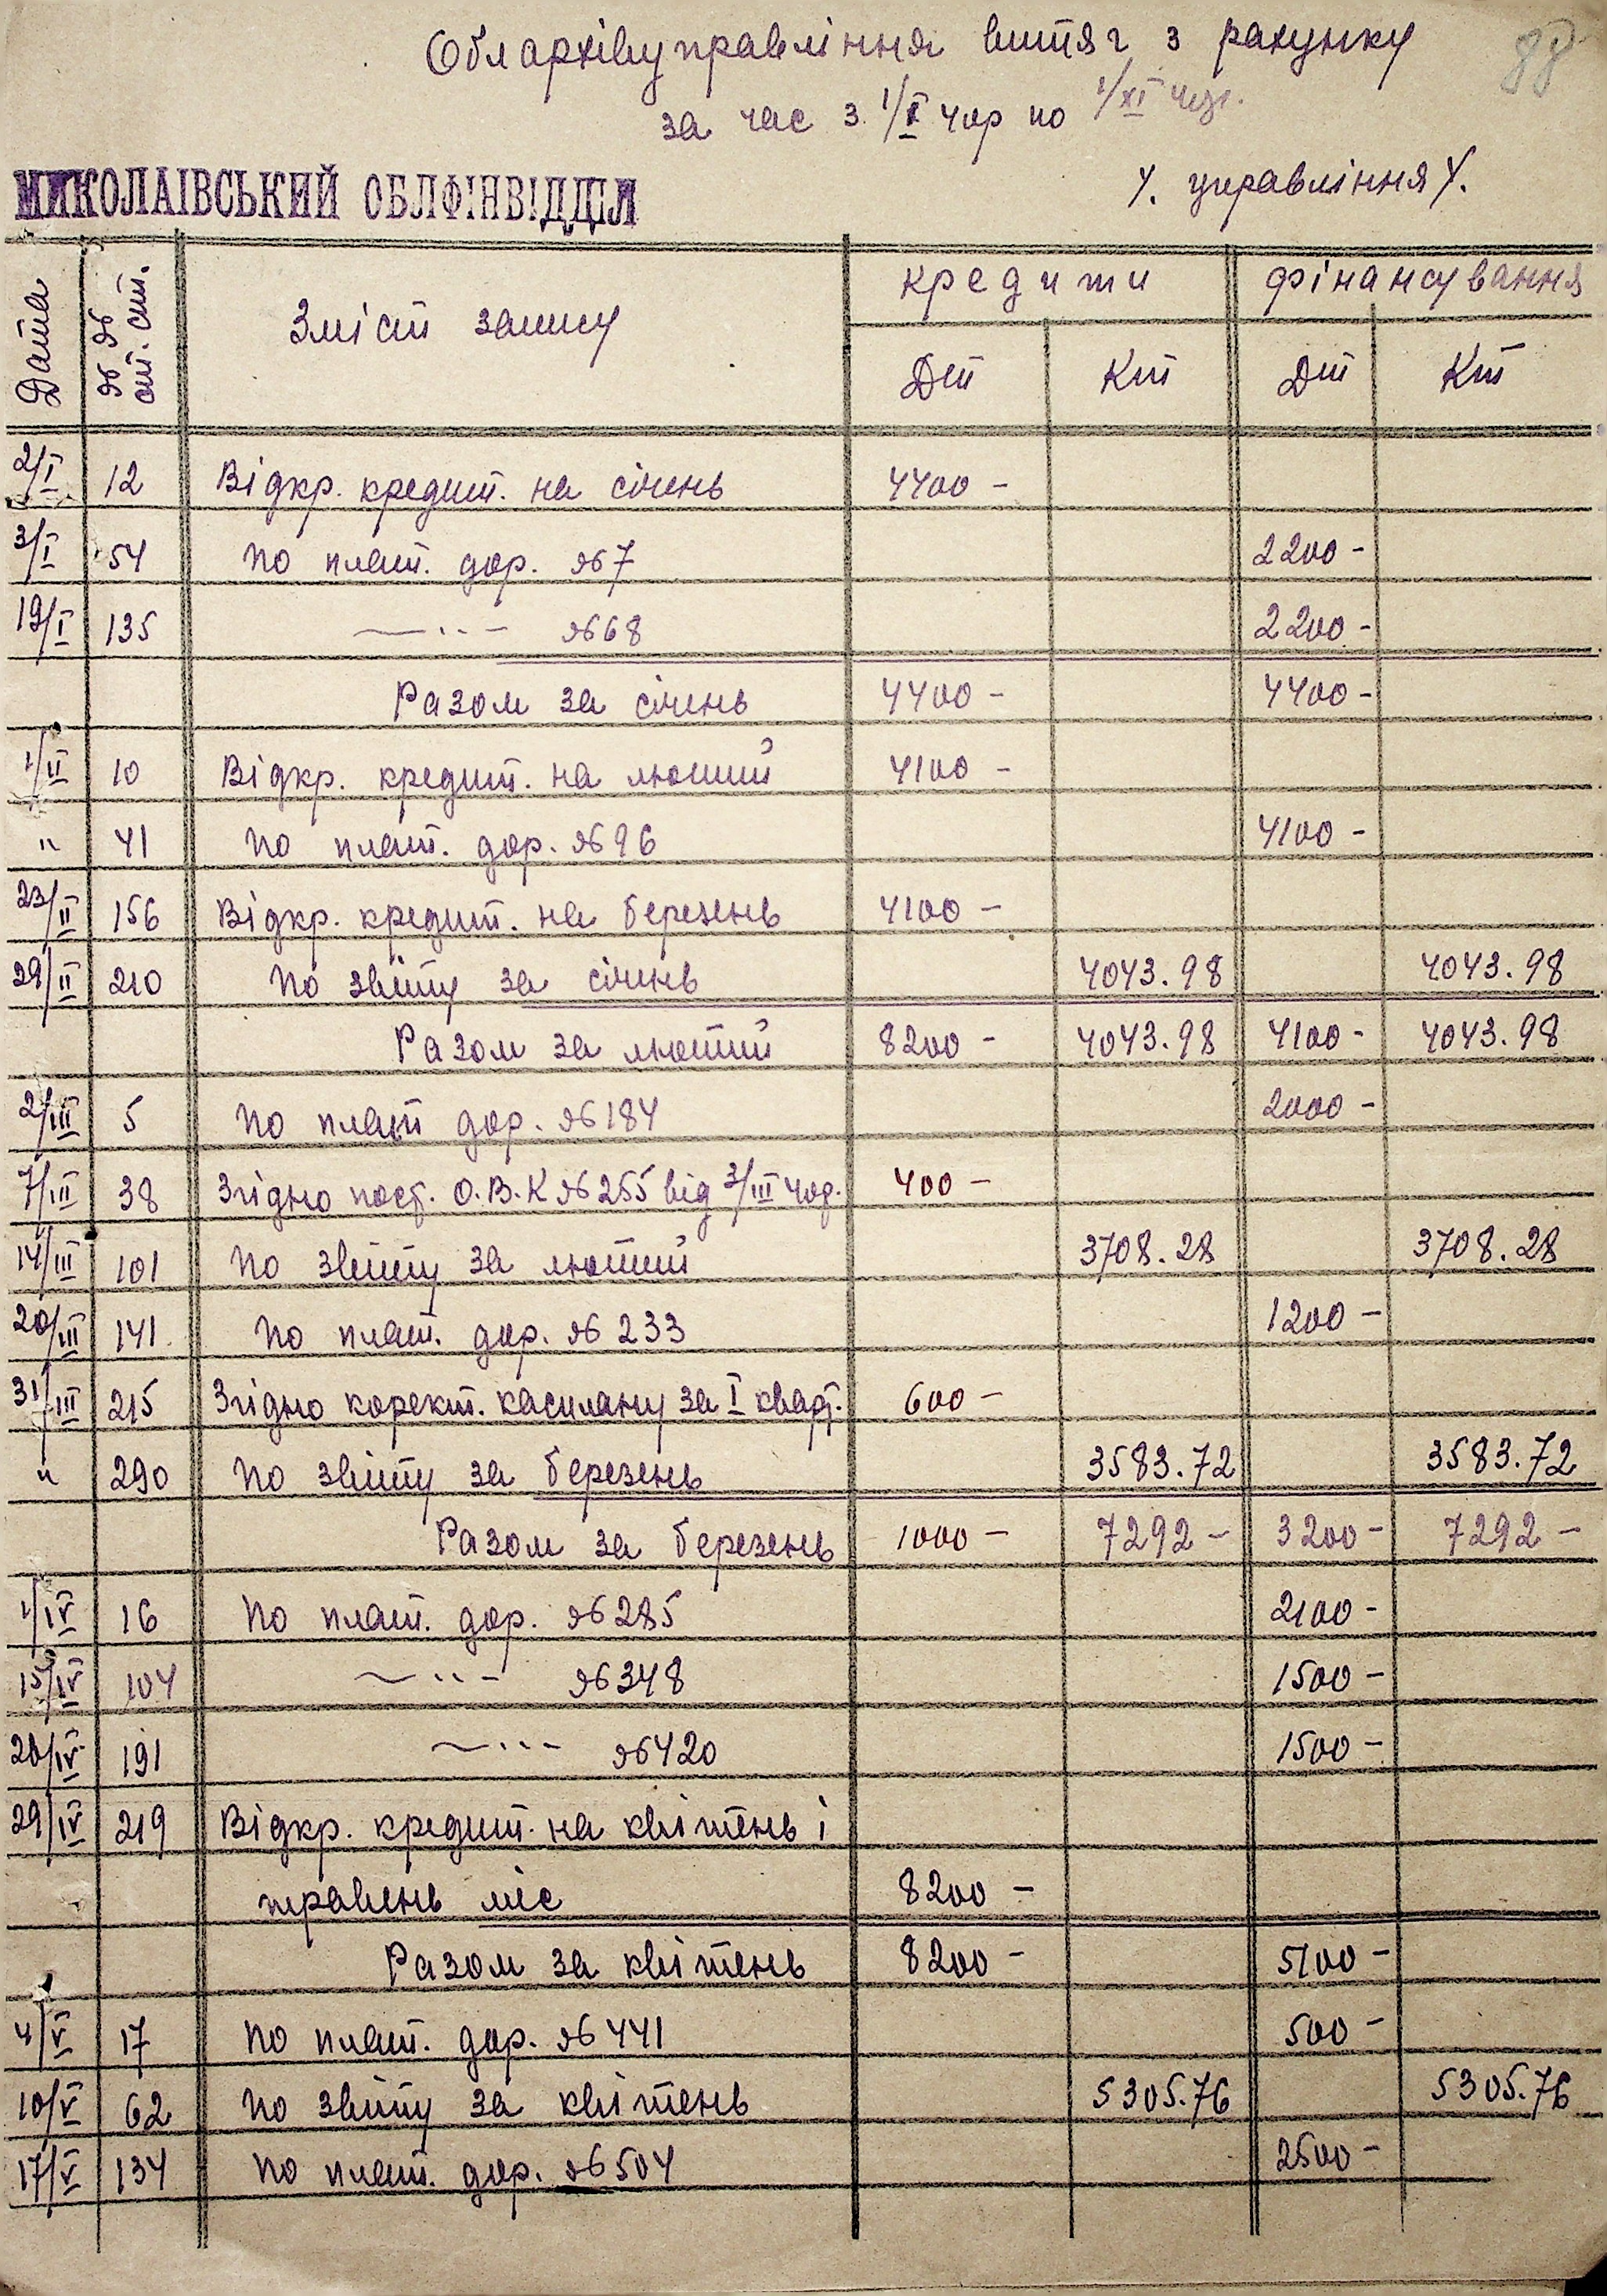 88
Обл архівуправління витяг з рахунку
за час з 1/I чор по 1/XI чор.
Ч. управління Ч.
МИКОЛАІВСЬКИЙ ОБЛФІНВІДДІЛ
Дата №№ ст. ст. Зміст запису кредити фінансування
Дт Кт Дт Кт
2/I 12 Відкр. кредит. на січень 4400 -
3/I 54 по плат. дор. №7 2200 -
19/I 135 — ·· — №68 2200 -
Разом за січень 4400 - 4400 -
1/II 10 Відкр. кредит. на лютий 4100 -
" 41 по плат. дор. №96 4100 -
23/II 156 Відкр. кредит. на березень 4100 -
29/II 210 по звіту за січень 4043.98 4043.98
Разом за лютий 8200 - 4043.98 4100 - 4043.98
2/III 5 по плат дор. №184 2000 -
7/III 38 Згідно пост. О.В.К №255 від 3/III чор. 400 -
14/III 101 по звіту за лютий 3708.28 3708.28
20/III 141 по плат. дор. №233 1200 -
31/III 215 Згідно корект. касплану за I кварт. 600 -
" 290 по звіту за березень 3583.72 3583.72
Разом за березень 1000 - 7292 - 3200 - 7292 -
1/IV 16 по плат. дор. №285 2100 -
15/IV 104 — ·· — №348 1500 -
28/IV 191 — ·· — №420 1500 -
29/IV 219 Відкр. кредит. на квітень і
травень міс 8200 -
Разом за квітень 8200 - 5100 -
4/V 17 по плат. дор. №441 500 -
10/V 62 по звіту за квітень 5305.76 5305.76
17/V 134 по плат. дор. №504 2500 -